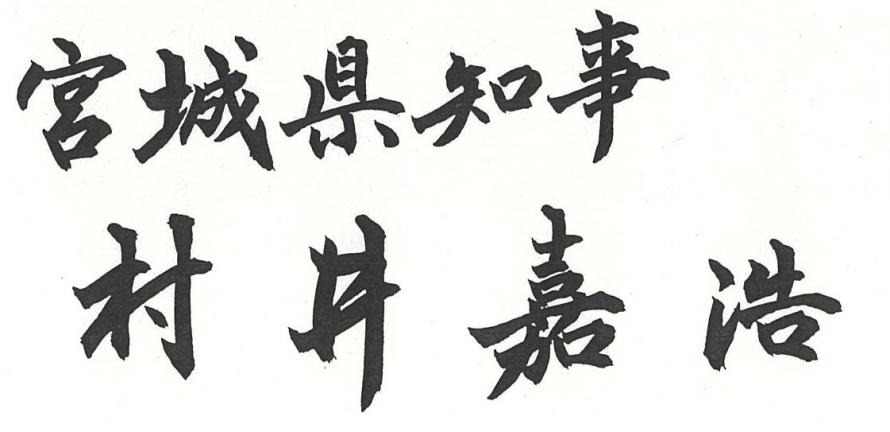 宮城県知事
村井嘉浩